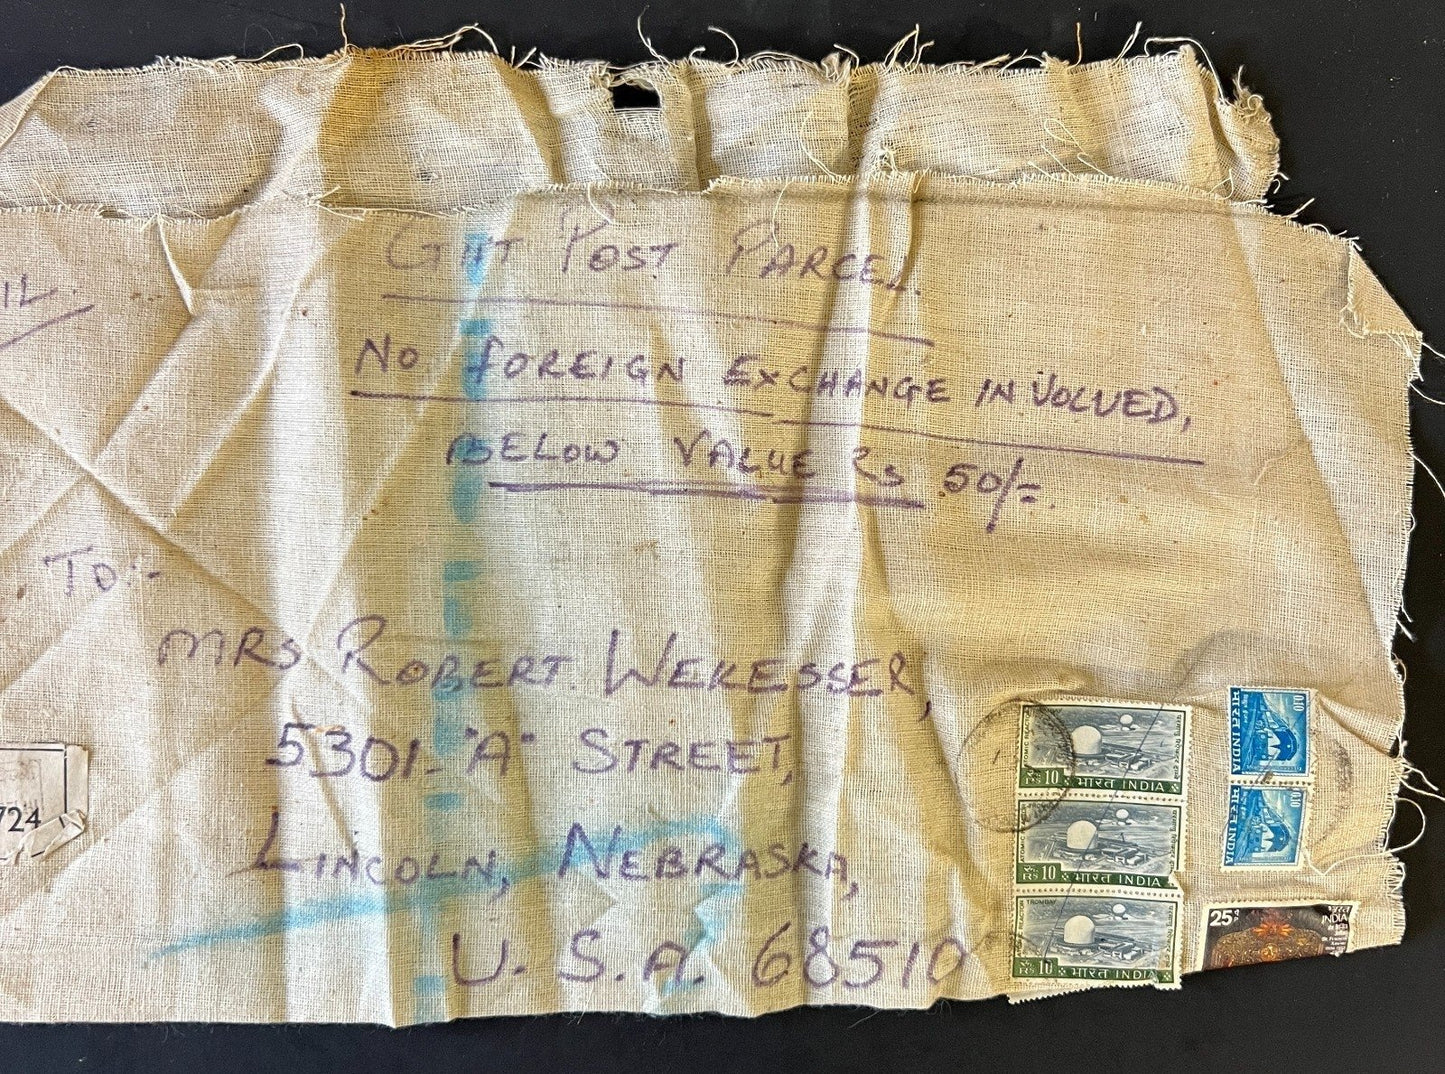 GIFT POST PARCEL.
NO FOREIGN EXCHANGE INVOLVED,
BELOW VALUE Rs 50/=.
IL.
TO:-
MRS ROBERT WEKESSER,
5301- "A" STREET,
LINCOLN, NEBRASKA,
U.S.A. 68510
724
रु RS 10 भारत INDIA
रु RS 10 भारत INDIA
TROMBAY
रु RS 10 भारत INDIA
0.10
भारत INDIA
0.10
भारत INDIA
25 भारत
INDIA
St. Francis
Xavier